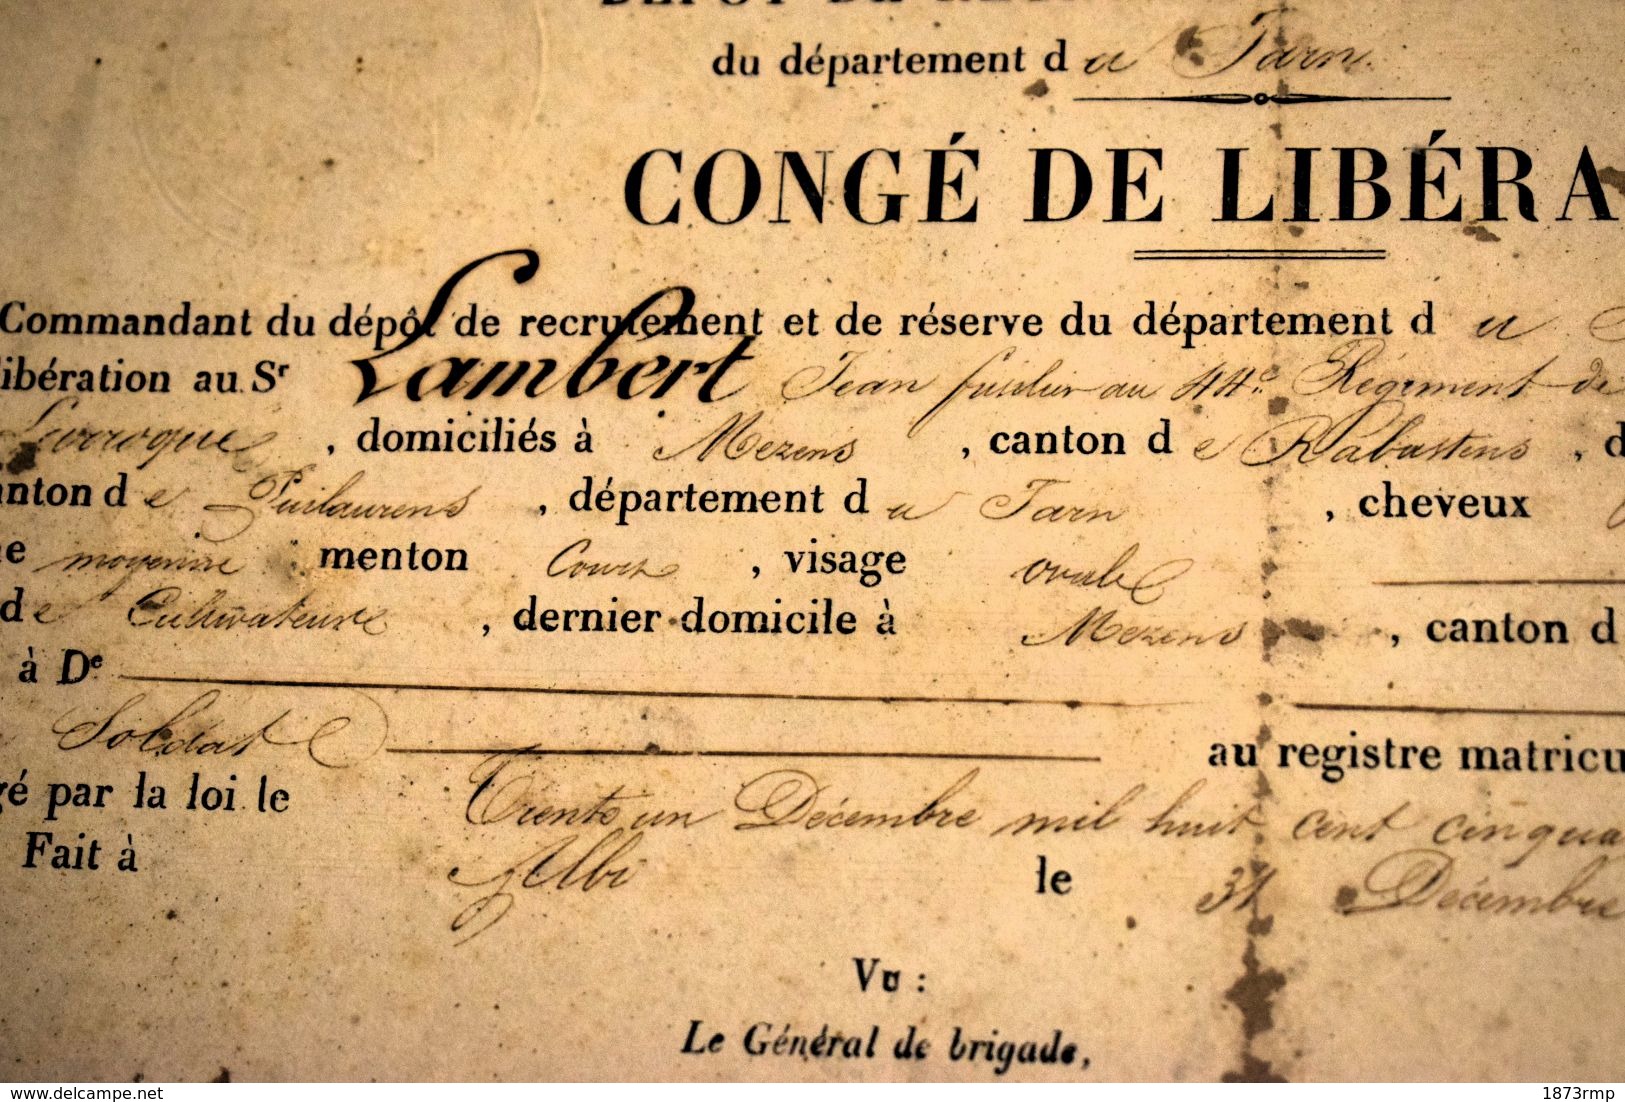 du département d u Tarn
CONGÉ DE LIBÉRA
Commandant du dépôt de recrutement et de réserve du département d u
libération au Sr Lambert Jean fusilier au 44e Régiment de
, domiciliés à Mezens , canton d e Rabastens , d
anton d e Puilaurens , département d u Tarn , cheveux
ne moyenne menton Court , visage ovale
d e Cultivateurs , dernier domicile à Mezens , canton d
à De
Soldat au registre matricu
gé par la loi le Trente un Décembre mil huit cent cinqua
Fait à Albi le 31 Décembre
Vu :
Le Général de brigade,
delcampe.net
1873rmp